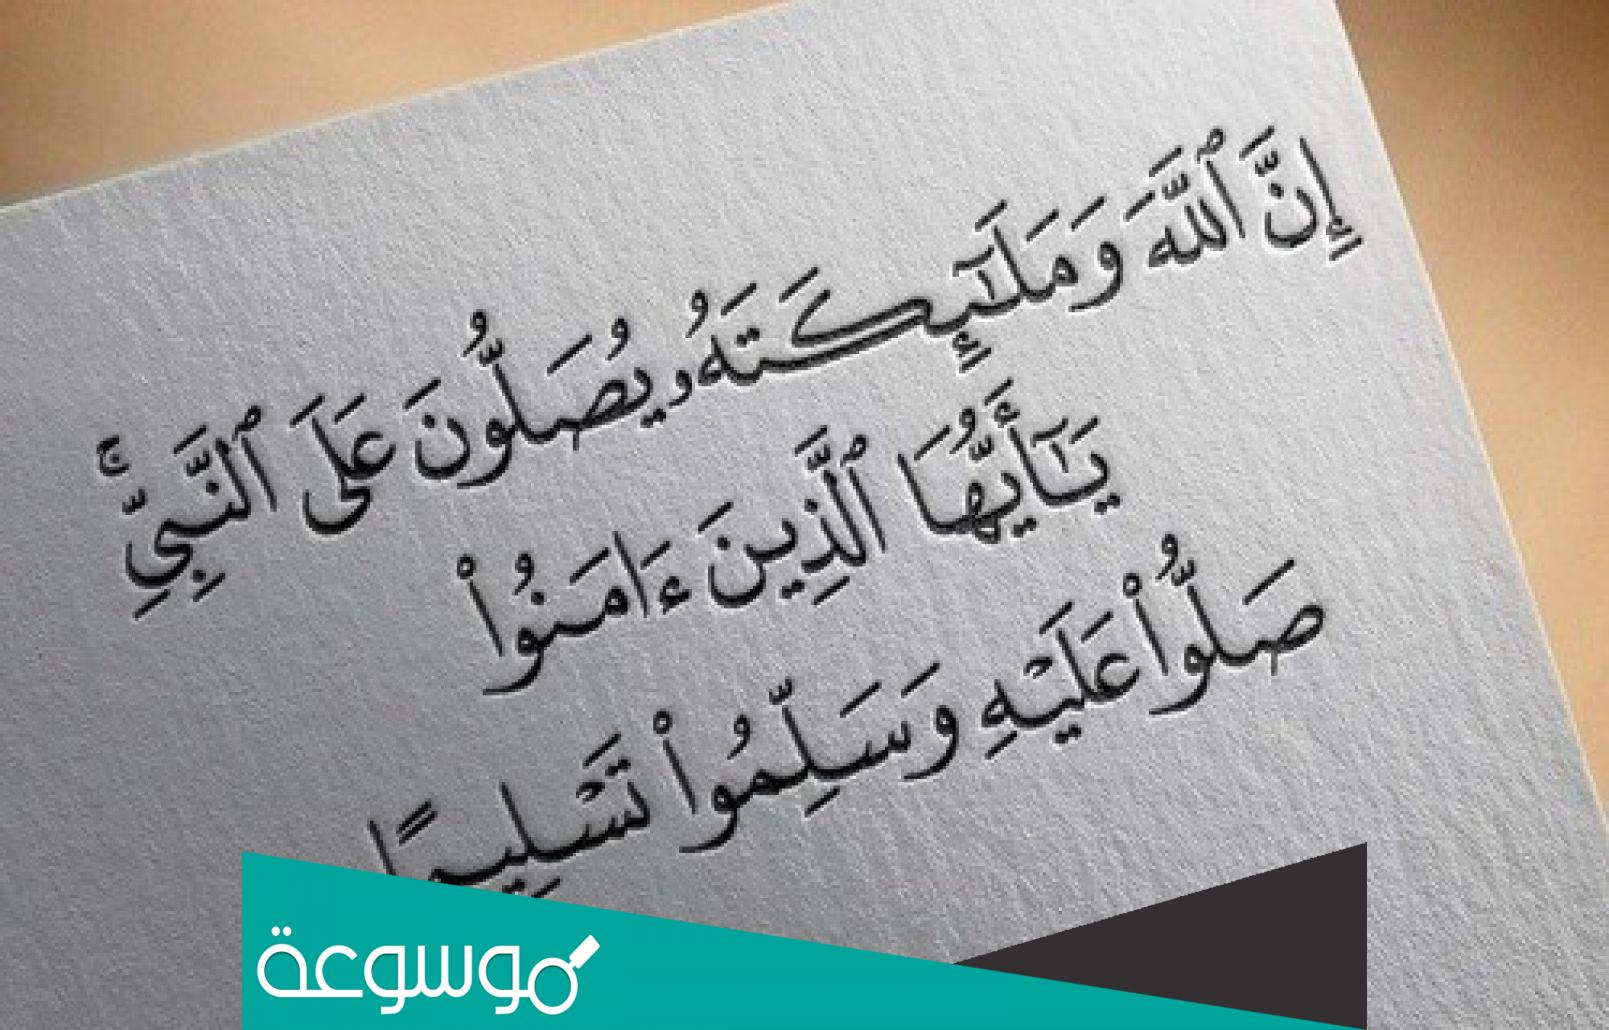 إِنَّ ٱللَّهَ وَمَلَـٰٓئِكَتَهُۥ يُصَلُّونَ عَلَى ٱلنَّبِيِّۚ
يَـٰٓأَيُّهَا ٱلَّذِينَ ءَامَنُوا۟
صَلُّوا۟ عَلَيْهِ وَسَلِّمُوا۟ تَسْلِيمًا
موسوعة